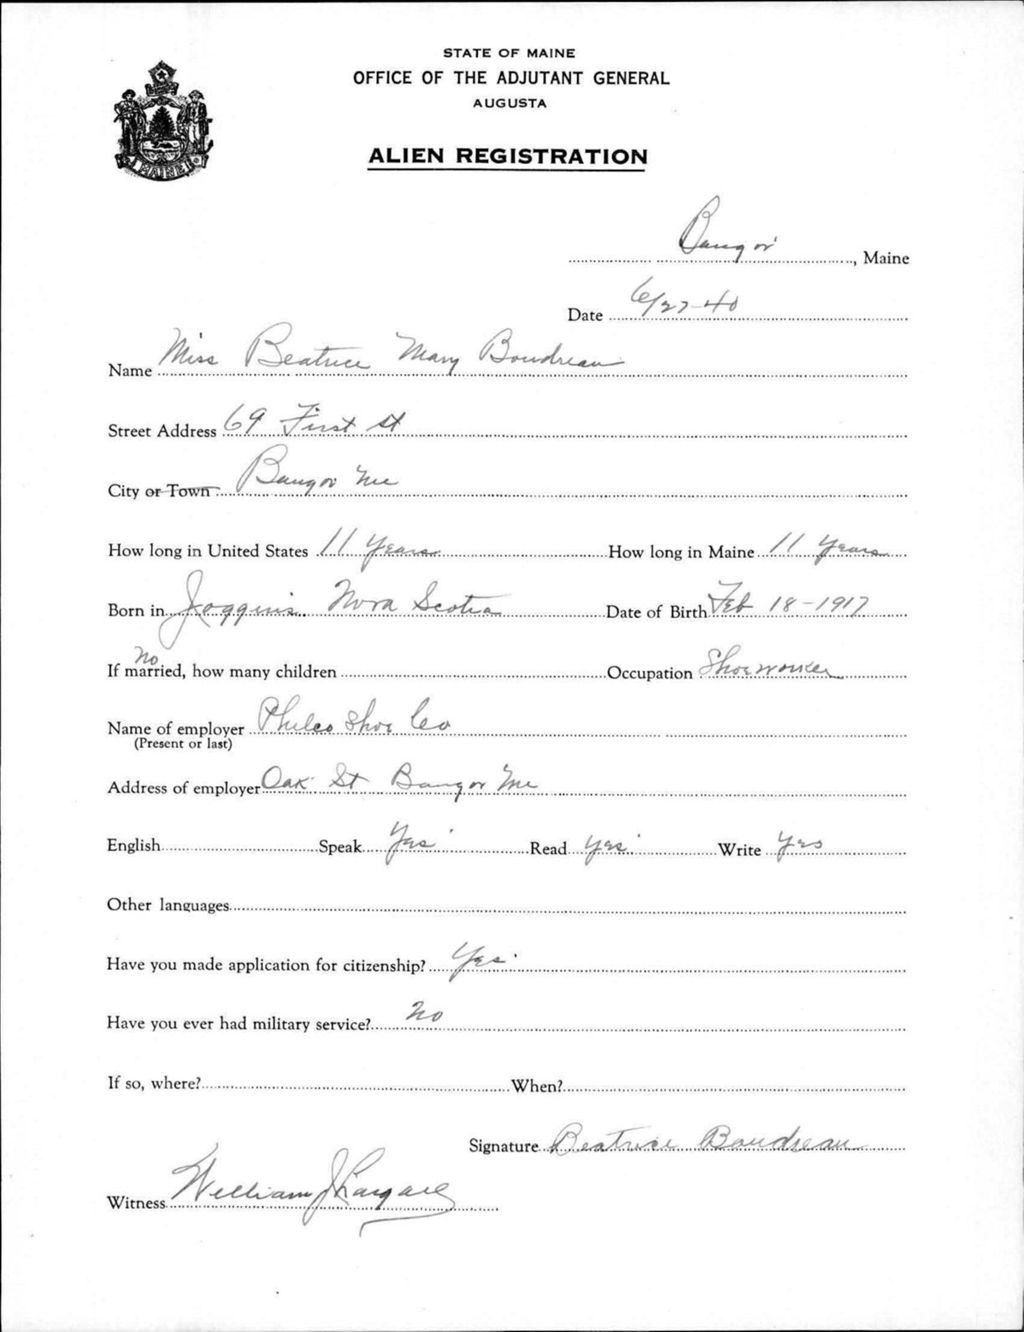 STATE OF MAINE
OFFICE OF THE ADJUTANT GENERAL
AUGUSTA
ALIEN REGISTRATION
MAINE
Bangor, Maine
Date 6/27-40
Name Miss Beatrice Mary Boudreau
Street Address 69 First St
City or Town Bangor Me
How long in United States 11 Years How long in Maine 11 Years
Born in Joggins Nova Scotia Date of Birth Feb 18-1917
no
If married, how many children Occupation Shoeworker
Name of employer Philco Shoe Co
(Present or last)
Address of employer Oak St Bangor Me
English Speak Yes Read Yes Write Yes
Other languages
Have you made application for citizenship? Yes
Have you ever had military service? No
If so, where? When?
Signature Beatrice Boudreau
Witness William J